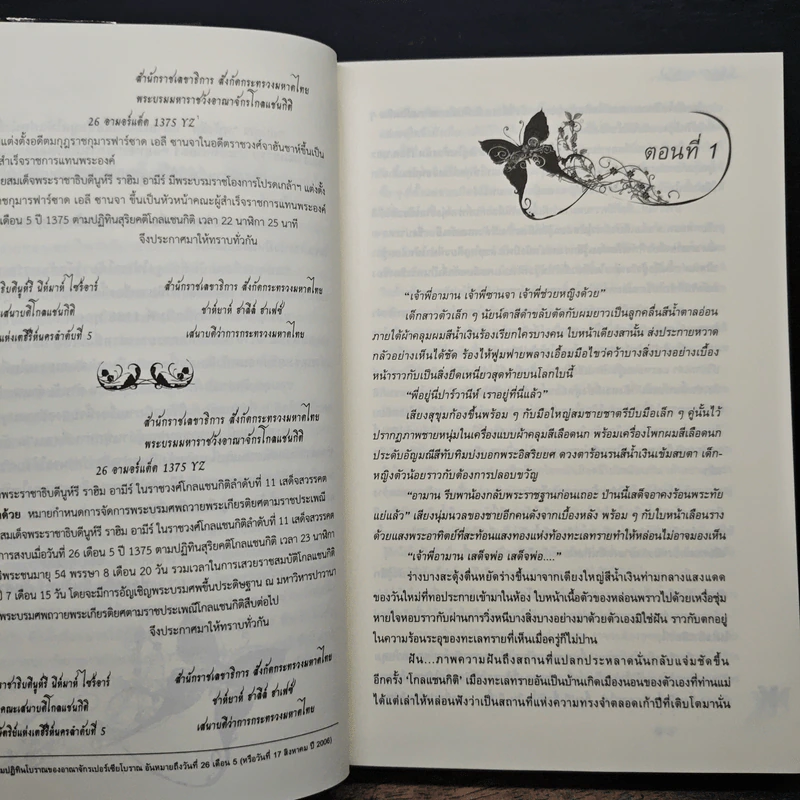 สำนักราชเลขาธิการ สังกัดกระทรวงมหาดไทย
พระบรมมหาราชวังอาณาจักรโกลแซนกิติ
26 อามอร์แด็ด 1375 YZ
แต่งตั้งอดีตมกุฎราชกุมารฟาร์ซาด เอลี ซานจาในอดีตราชวงศ์จาฮันชาห์ขึ้นเป็น
สำเร็จราชการแทนพระองค์
ยสมเด็จพระราชาธิบดีนูห์รี ราฮิม อามีร์ มีพระบรมราชโองการโปรดเกล้าฯ แต่งตั้ง
ราชกุมารฟาร์ซาด เอลี ซานจา ขึ้นเป็นหัวหน้าคณะผู้สำเร็จราชการแทนพระองค์
เดือน 5 ปี 1375 ตามปฏิทินสุริยคติโกลแซนกิติ เวลา 22 นาฬิกา 25 นาที
จึงประกาศมาให้ทราบทั่วกัน
สำนักราชเลขาธิการ สังกัดกระทรวงมหาดไทย
ชาห์ยาห์ ฮาสิล์ ฮาเฟซ์
เสนาบดีว่าการกระทรวงมหาดไทย
สำนักราชเลขาธิการ สังกัดกระทรวงมหาดไทย
พระบรมมหาราชวังอาณาจักรโกลแซนกิติ
26 อามอร์แด็ด 1375 YZ
จพระราชาธิบดีนูห์รี ราฮิม อามีร์ ในราชวงศ์โกลแซนกิติลำดับที่ 11 เสด็จสวรรคต
ด้วย หมายกำหนดการจัดการพระบรมศพถวายพระเกียรติยศตามราชประเพณี
จพระราชาธิบดีนูห์รี ราฮิม อามีร์ ในราชวงศ์โกลแซนกิติลำดับที่ 11 เสด็จสวรรคต
การสงบเมื่อวันที่ 26 เดือน 5 ปี 1375 ตามปฏิทินสุริยคติโกลแซนกิติ เวลา 23 นาฬิกา
มีพระชนมายุ 54 พรรษา 8 เดือน 20 วัน รวมเวลาในการเสวยราชสมบัติโกลแซนกิติ
ปี 7 เดือน 15 วัน โดยจะมีการอัญเชิญพระบรมศพขึ้นประดิษฐาน ณ มหาวิหารปาวานา
พระบรมศพถวายพระเกียรติยศตามราชประเพณีโกลแซนกิติสืบต่อไป
จึงประกาศมาให้ทราบทั่วกัน
สำนักราชเลขาธิการ สังกัดกระทรวงมหาดไทย
ชาห์ยาห์ ฮาสิล์ ฮาเฟซ์
เสนาบดีว่าการกระทรวงมหาดไทย
มปฏิทินโบราณของอาณาจักรเปอร์เซียโบราณ อันหมายถึงวันที่ 26 เดือน 5 (หรือวันที่ 17 สิงหาคม ปี 2006)
ตอนที่ 1
“เจ้าพี่อามาน เจ้าพี่ซานจา เจ้าพี่ช่วยหญิงด้วย”
เด็กสาวตัวเล็ก ๆ นัยน์ตาสีดำขลับตัดกับผมยาวเป็นลูกคลื่นสีน้ำตาลอ่อน
ภายใต้ผ้าคลุมผมสีน้ำเงินร้องเรียกใครบางคน ใบหน้าเดียงสานั้น ส่งประกายหวาด
กลัวอย่างเห็นได้ชัด ร้องไห้ฟูมฟายพลางเอื้อมมือไขว่คว้าบางสิ่งบางอย่างเบื้อง
หน้าราวกับเป็นสิ่งยึดเหนี่ยวสุดท้ายบนโลกใบนี้
“พี่อยู่นี่ปาร์วานีห์ เราอยู่ที่นี่แล้ว”
เสียงสุขุมก้องขึ้นพร้อม ๆ กับมือใหญ่สมชายชาตรีบีบมือเล็ก ๆ คู่นั้นไว้
ปรากฏภาพชายหนุ่มในเครื่องแบบผ้าคลุมสีเลือดนก พร้อมเครื่องโพกผมสีเลือดนก
ประดับอัญมณีสีทับทิมบ่งบอกพระอิสริยยศ ดวงตาร้อนรนสีน้ำเงินเข้มสบตา เด็ก-
หญิงตัวน้อยราวกับต้องการปลอบขวัญ
“อามาน รีบพาน้องกลับพระราชฐานก่อนเถอะ ป่านนี้เสด็จอาคงร้อนพระทัย
แย่แล้ว” เสียงนุ่มนวลของชายอีกคนดังจากเบื้องหลัง พร้อม ๆ กับใบหน้าเลือนราง
ด้วยแสงพระอาทิตย์ที่สะท้อนแสงทองแห่งท้องทะเลทรายทำให้หล่อนไม่อาจมองเห็น
“เจ้าพี่อามาน เสด็จพ่อ เสด็จพ่อ....”
ร่างบางสะดุ้งตื่นหยัดร่างขึ้นมาจากเตียงใหญ่สีน้ำเงินท่ามกลางแสงแดด
ของวันใหม่ที่ทอประกายเข้ามาในห้อง ใบหน้าเนื้อตัวของหล่อนพราวไปด้วยเหงื่อชุ่ม
หายใจหอบราวกับผ่านการวิ่งหนีบางสิ่งบางอย่างมาด้วยตัวเองมิใช่ฝัน ราวกับตกอยู่
ในความร้อนระอุของทะเลทรายที่เห็นเมื่อครู่ก็ไม่ปาน
ฝัน...ภาพความฝันถึงสถานที่แปลกประหลาดนั่นกลับแจ่มชัดขึ้น
อีกครั้ง ‘โกลแซนกิติ’ เมืองทะเลทรายอันเป็นบ้านเกิดเมืองนอนของตัวเองที่ท่านแม่
ได้แต่เล่าให้หล่อนฟังว่าเป็นสถานที่แห่งความทรงจำตลอดเก้าปีที่เติบโตมานั่น